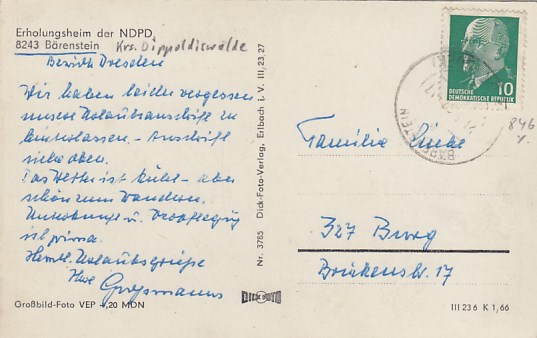 Erholungsheim der NDPD
8243 Bärenstein Krs. Dippoldiswalde
Bezirk Dresden
Wir haben leider vergessen
unsere Urlaubsanschrift zu
hinterlassen - Anschrift
siehe oben.
Das Wetter ist kühl - aber
schön zum Wandern.
Unterbringg u. Verpflegung
ist prima.
Herzl. Urlaubsgrüße
Ihre Großmanns
Großbild-Foto VEP -,20 MDN
Nr. 3785 Dick-Foto-Verlag, Erlbach i. V. III,23,27
DICK FOTO
10
DEUTSCHE
DEMOKRATISCHE REPUBLIK
BÄRENSTEIN
846
Familie
327 Burg
Brückenstr. 17
III 23 6 K 1,66